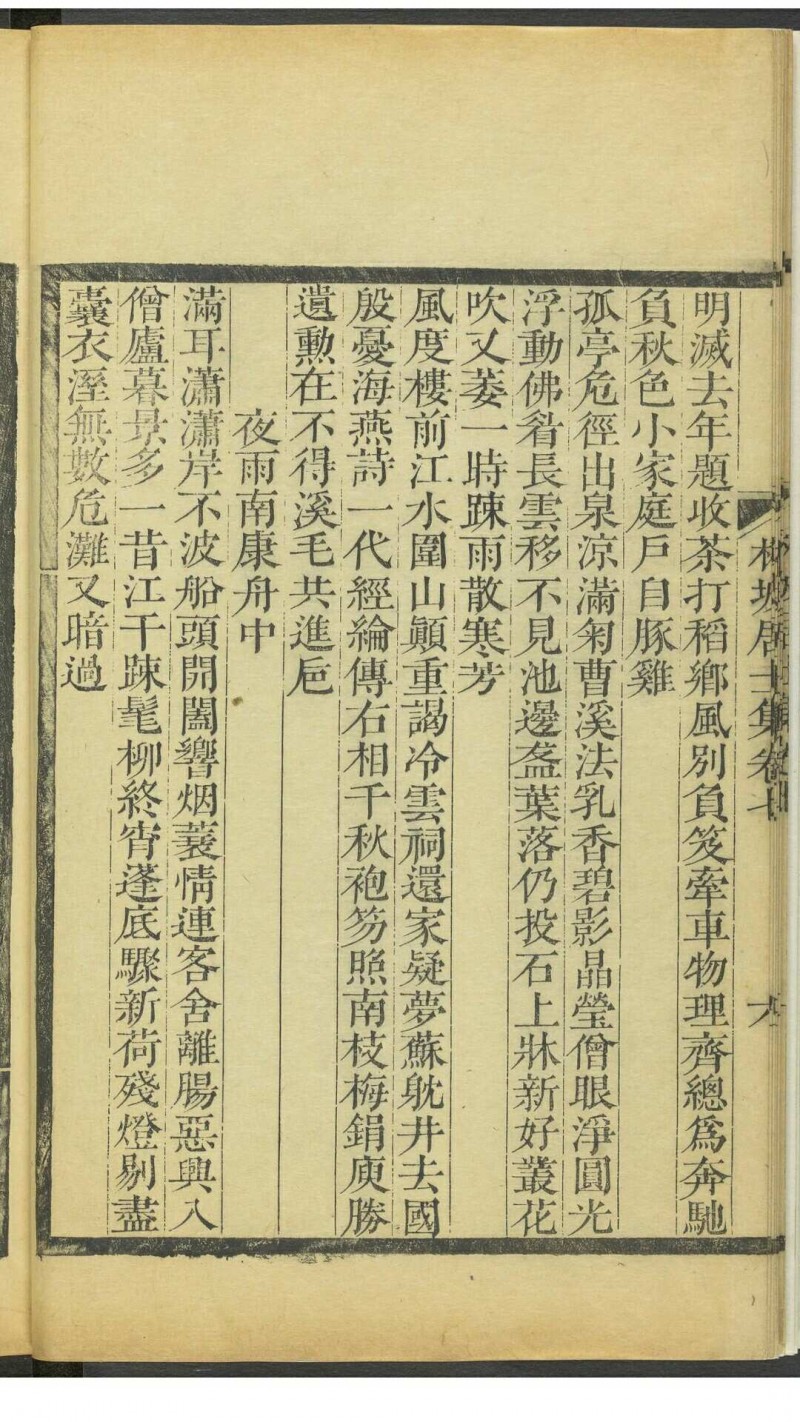 居士集卷
明滅去年題收茶打稻鄉風別負笈牽車物理齊總爲奔馳
負秋色小家庭戶自豚雞
孤亭危徑出泉涼滿菊曹溪法乳香碧影晶瑩僧眼淨圓光
浮動佛睂長雲移不見池邊盋葉落仍投石上牀新好叢花
吹又萎一時踈雨散寒芳
風度樓前江水圍山顚重謁冷雲祠還家疑夢蘇躭井去國
殷憂海燕詩一代經綸傳右相千秋袍笏照南枝梅鋗庾勝
遺勳在不得溪毛共進巵
夜雨南康舟中
滿耳瀟瀟岸不波船頭開闔響烟蓑情連客舍離腸惡興入
僧廬暮景多一昔江干踈髦柳終宵蓬底驟新荷殘燈剔盡
囊衣溼無數危灘又暗過